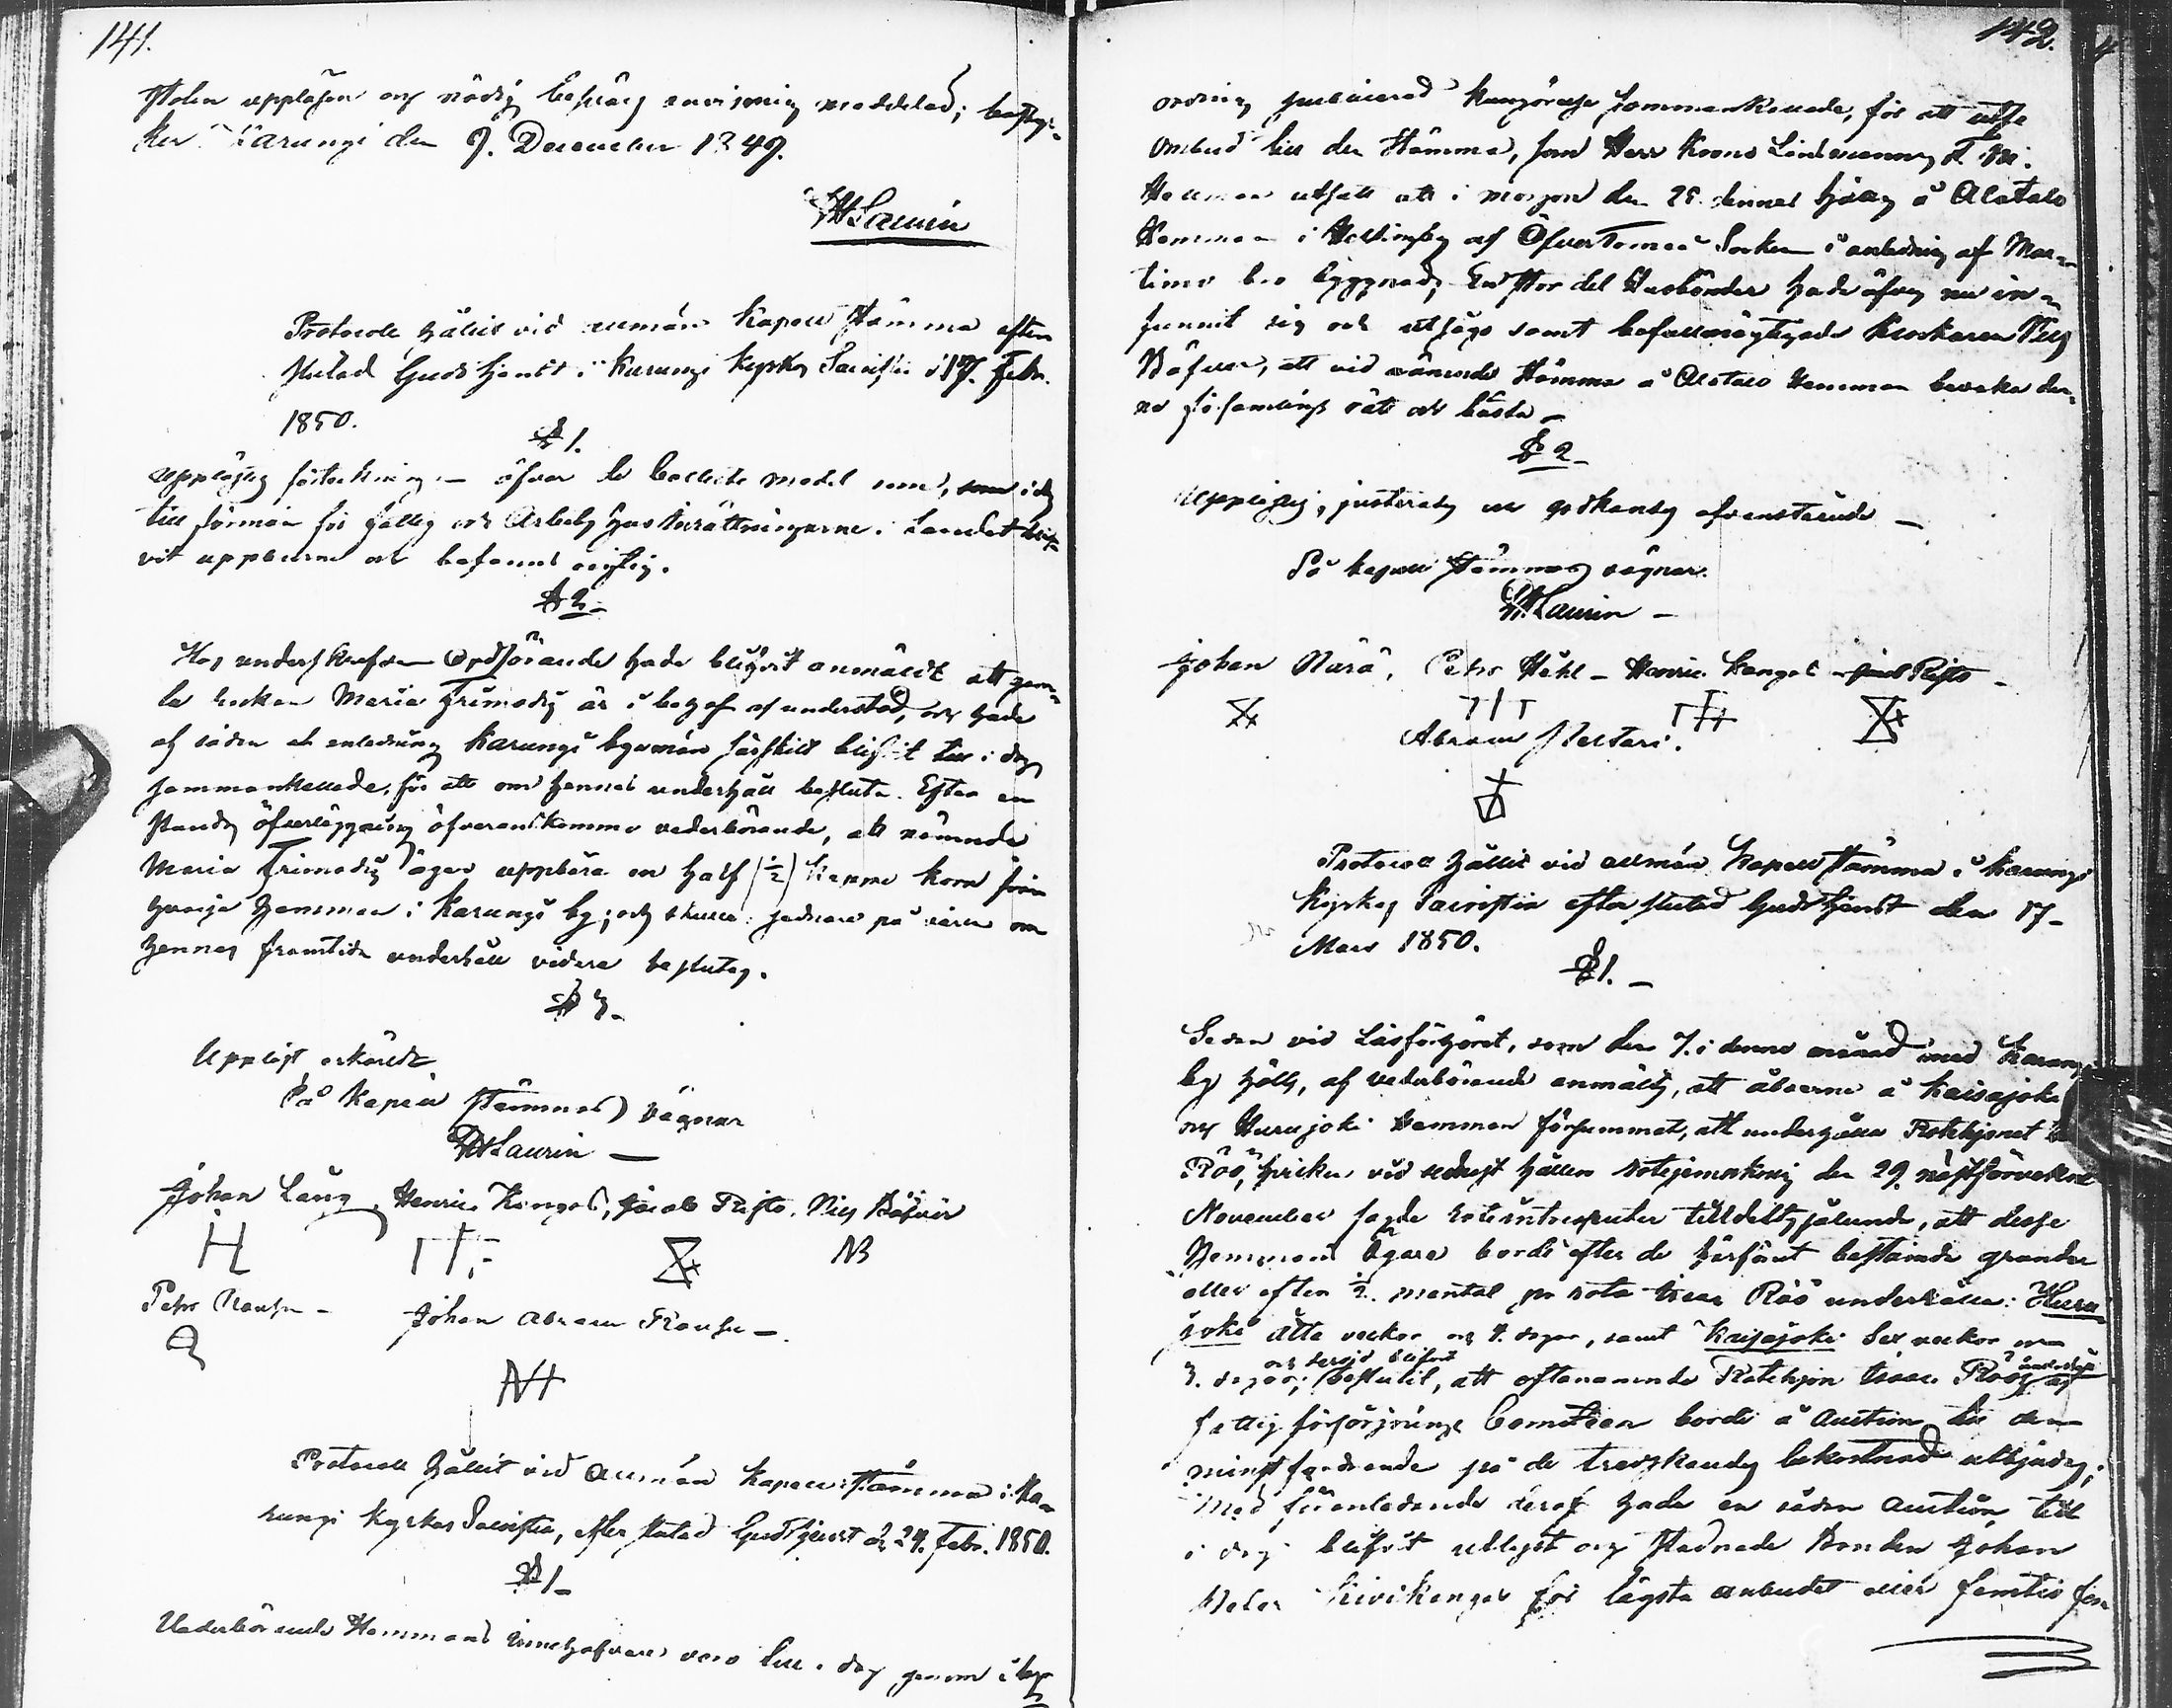 141.
Stolen uppläsen och nödig besvärs anvisning meddelad; betyg-
ker. Karungi den 9. December 1849.
Laurin
Protocoll hållit vid allmän Kapell Stämma efter
slutad Gudstjenst i Karungi Kyrkas Sacristia d. 17. Febr.
1850.
§ 1.
Upplästes förteckningen öfver de Collecte medel som, som i dag
till förmån för fattig och Arbets hus Inrättningarne i Landet blif-
vit uppburne och befanns riktig.
§ 2.
Hos underskrefven Ordförande hade blifvit anmäldt att gam-
la enkan Maria Frimodig är i behof af understöd, och hade
af sådan anledning Karungi byamän särskilt blifvit till i dag
sammankallade, för att om hennes underhåll besluta. Efter en
stunds öfverläggning öfverenskommo vederbörande, att nämnde
Maria Frimodig äger uppbära en half (½) Kappe Korn från
hvarje hemman i Karungi by; och skulle sednare på våren om
hennes framtida underhåll vidare beslutas.
§ 3.
Uppläst, erkändt.
På Kapell Stämmans vägnar
Laurin
Johan Lång, Henric Kangas, Jacob Risto, Nils Böfvär
H
NB
Petter Rausu - Johan Abram Rousu -.
Protocoll hållit vid allmän Kapell Stämma i Ka-
rungi Kyrkas Sacristia, efter slutad Gudstjenst d. 24. Febr. 1850.
§ 1.
Vederbörande Hemmans innehafvare voro till i dag genom i lag
142.
ordning publicerad Kungörelse sammankallade, för att utse
Ombud till den Stämma, som Herr Krono Länsmannen
utsatt att i morgon den 25. dennes hållas å Alatalo
Hemman i af Öfver Torneå Socken i anledning af Mar-
timo bro byggnad; En stor del Husbönder hade äfven nu in-
funnit sig och utsågo samt befullmägtigade Klockaren Nils
Böfver, att vid nämnde Stämma å Alatalo Hemman bevaka den-
na församlings rätt och bästa -
§ 2.
Upplästes, justerades och godkändes ofvanstående -
På Kapell Stämmans vägnar.
Laurin -
Johan Nara, Petter Häkl - Henric Kangas - Risto -
Abram
Protocoll hållit vid allmän Kapell Stämma i Karungi
Kyrkas Sacristia efter slutad Gudstjenst den 17-
Mars 1850.
§ 1. -
Sedan vid Läsförhöret, som den 7. i denne månad med Karungi
by hölls, af vederbörande anmäldts, att åboerne å Kaisajoki
och Hurujoki Hemman försummat, att underhålla Rotehjonet
Röö, hvilken vid sednast hållen rotejemkning den 29. nästförvekne
November sagde roteintressenter tilldelts gälande, att desse
Hemmans Ägare borde efter de härförut bestämde grunder
eller efter ½. mantal pr rota Röö underhålla: Huru
joki åtta veckor och 4. dagar, samt Kaisajoki Sex veckor och
3. dagar; och dervid blifvit beslutit, att oftanämnde Rotehjon Röös underhåll af
fattigförsörjnings Comitéen borde å Auction till den
minstfordrande på de tredskandes bekostnad utbjudas;
Med föranledande deraf hade en sådan auction till
i dag blifvit utlyst och stadnade Bonden Johan
Kivikangas för lägsta anbudet eller femtio fem